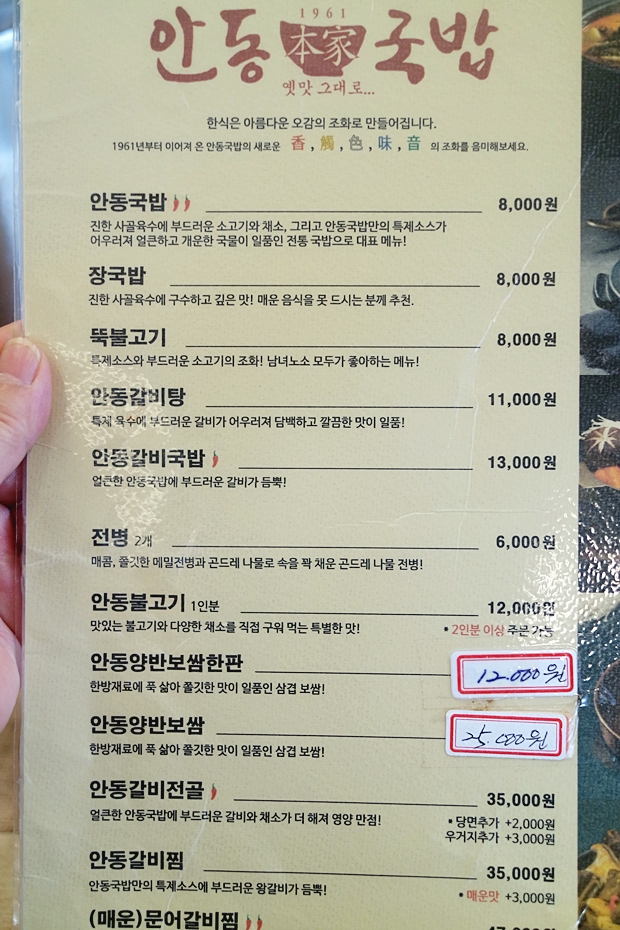 1961
안동 本家 국밥
옛맛 그대로...
한식은 아름다운 오감의 조화로 만들어집니다.
1961년부터 이어져 온 안동국밥의 새로운 香, 觸, 色, 味, 音 의 조화를 음미해보세요.
안동국밥 8,000원
진한 사골육수에 부드러운 소고기와 채소, 그리고 안동국밥만의 특제소스가
어우러져 얼큰하고 개운한 국물이 일품인 전통 국밥으로 대표 메뉴!
장국밥 8,000원
진한 사골육수에 구수하고 깊은 맛! 매운 음식을 못 드시는 분께 추천.
뚝불고기 8,000원
특제소스와 부드러운 소고기의 조화! 남녀노소 모두가 좋아하는 메뉴!
안동갈비탕 11,000원
특제 육수에 부드러운 갈비가 어우러져 담백하고 깔끔한 맛이 일품!
안동갈비국밥 13,000원
얼큰한 안동국밥에 부드러운 갈비가 듬뿍!
전병 2개 6,000원
매콤, 쫄깃한 메밀전병과 곤드레 나물로 속을 꽉 채운 곤드레 나물 전병!
안동불고기 1인분 12,000원
맛있는 불고기와 다양한 채소를 직접 구워 먹는 특별한 맛! • 2인분 이상 주문 가능
안동양반보쌈한판 12.000원
한방재료에 푹 삶아 쫄깃한 맛이 일품인 삼겹 보쌈!
안동양반보쌈 25.000원
한방재료에 푹 삶아 쫄깃한 맛이 일품인 삼겹 보쌈!
안동갈비전골 35,000원
얼큰한 안동국밥에 부드러운 갈비와 채소가 더 해져 영양 만점! • 당면추가 +2,000원
우거지추가 +3,000원
안동갈비찜 35,000원
안동국밥만의 특제소스에 부드러운 왕갈비가 듬뿍! • 매운맛 +3,000원
(매운)문어갈비찜